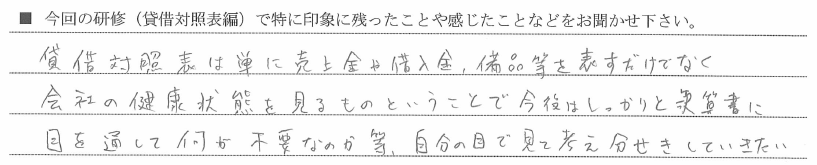 ■ 今回の研修（貸借対照表編）で特に印象に残ったことや感じたことなどをお聞かせ下さい。
貸借対照表は単に売上金や借入金，備品等を表すだけでなく
会社の健康状態を見るものということで今後はしっかりと決算書に
目を通して何が不要なのか等、自分の目で見て考え分せきしていきたい